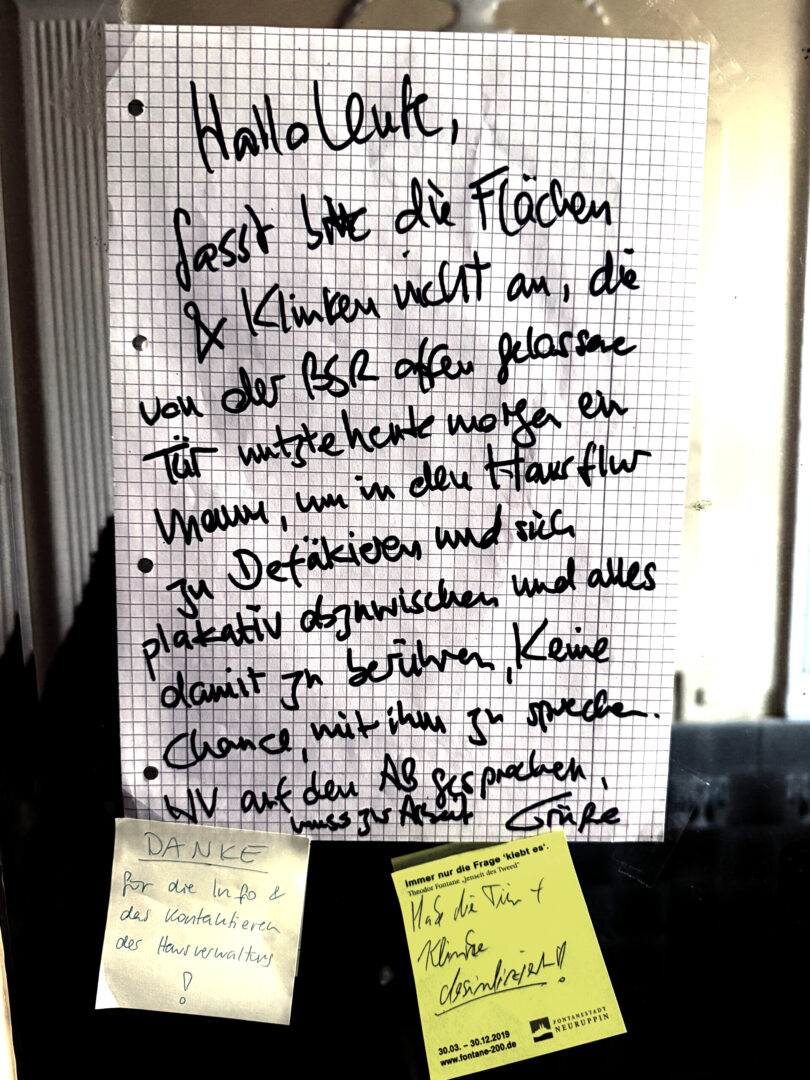 Hallo Leute,
fasst bitte die Flächen
& Klinken nicht an, die
von der BSR offen gelassene
Tür nutzte heute morgen ein
Mann, um in den Hausflur
zu Defäkieren und sich
plakativ abzuwischen und alles
damit zu berühren, Keine
Chance, mit ihm zu sprechen.
HV auf den AB gesprochen,
muss zur Arbeit Grüße
DANKE
für die Info &
das Kontaktieren
der Hausverwaltung
!
Immer nur die Frage 'klebt es'.
Theodor Fontane „Jenseit des Tweed"
Hab die Tür +
Klinke
desinfiziert!
30.03. – 30.12.2019
www.fontane-200.de
FONTANESTADT
NEURUPPIN